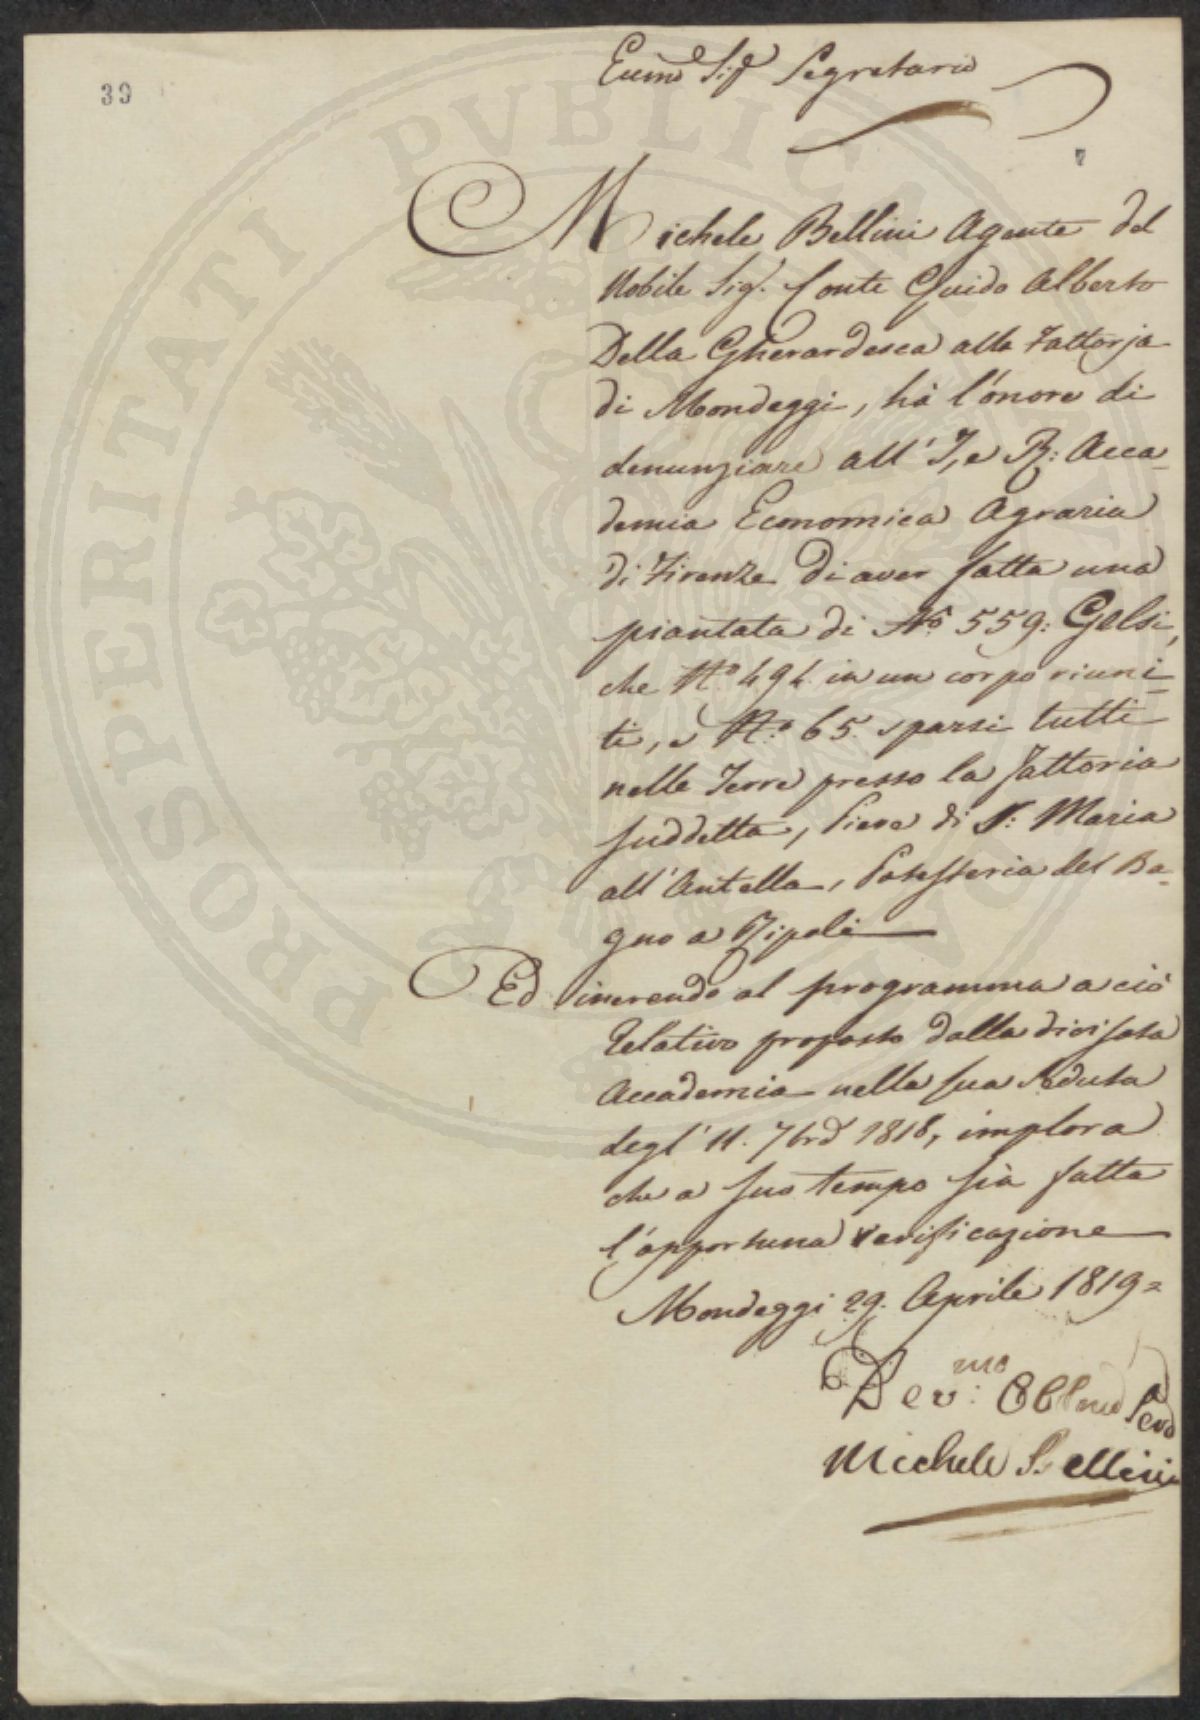 39
Eccmo Sigr Segretario
7
Michele Bellini Agente del
Nobile Sig. Conte Guido Alberto
Della Gherardesca alla Fattoria
di Mondeggi, hà l'onore di
denunziare all'I, e R: Acca-
demia Economica Agraria
di Firenze di aver fatta una
piantata di No 559: Gelsi,
che No 494. in un corpo riuni-
ti, e No 65. sparsi tutti
nelle Terre presso la Fattoria
suddetta, Pieve di S: Maria
all'Antella, Potesteria del Ba-
gno a Ripoli
Ed inerendo al programma a ciò
relativo proposto dalla divisata
Accademia nella sua Seduta
degl' 11. 7bre 1818, implora
che a suo tempo sia fatta
l'opportuna verificazione
Mondeggi 29. Aprile 1819=
Devmo: Obblmo Servo
Michele Bellini
PROSPERITATI PVBLICAE